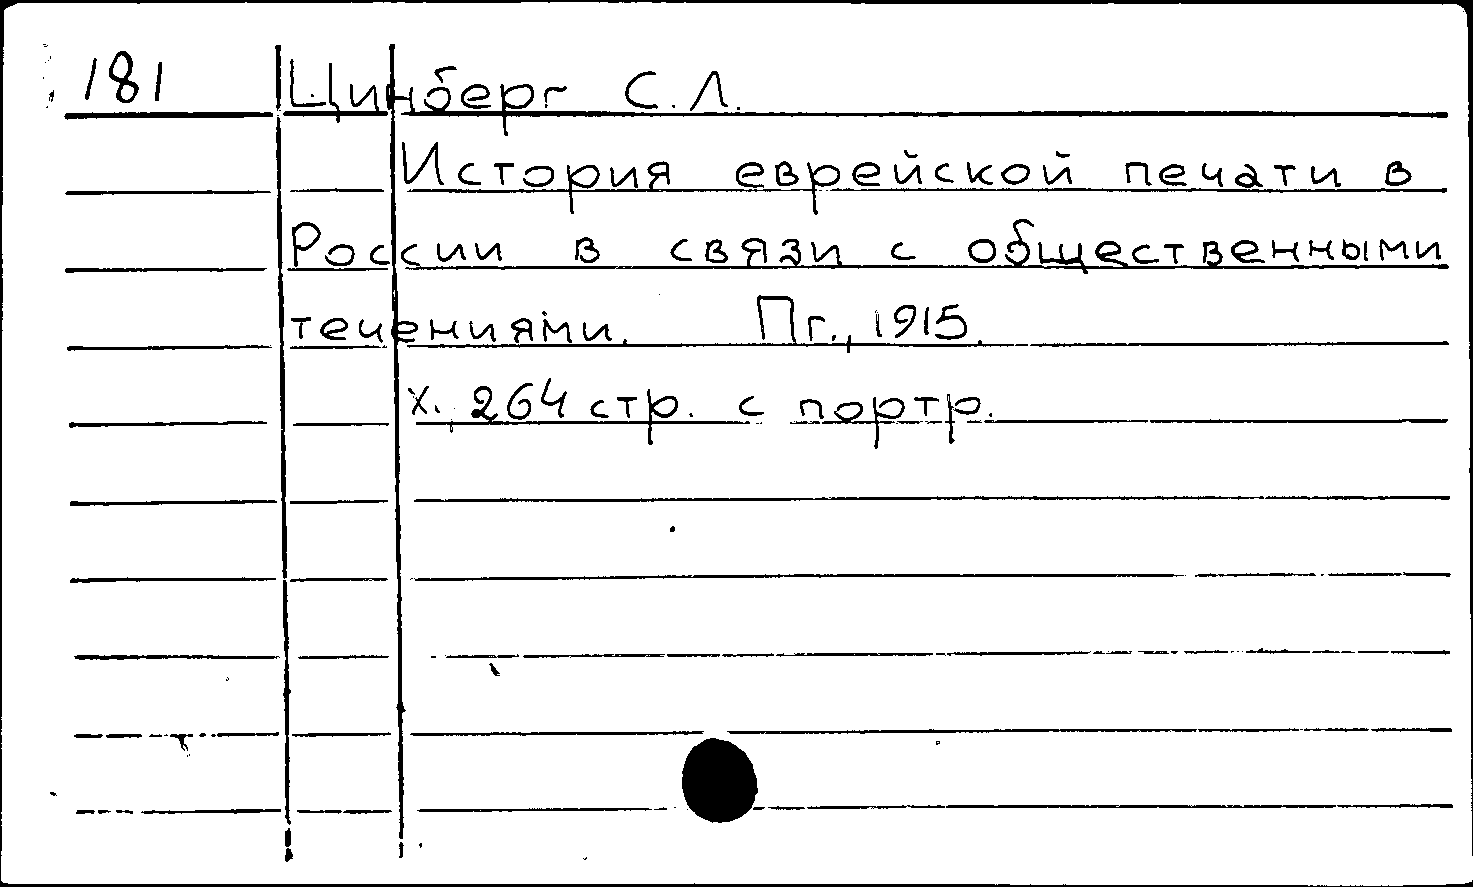 181 Цинберг С.Л.
История еврейской печати в
России в связи с общественными
течениями. Пг., 1915.
х., 264 стр. с портр.